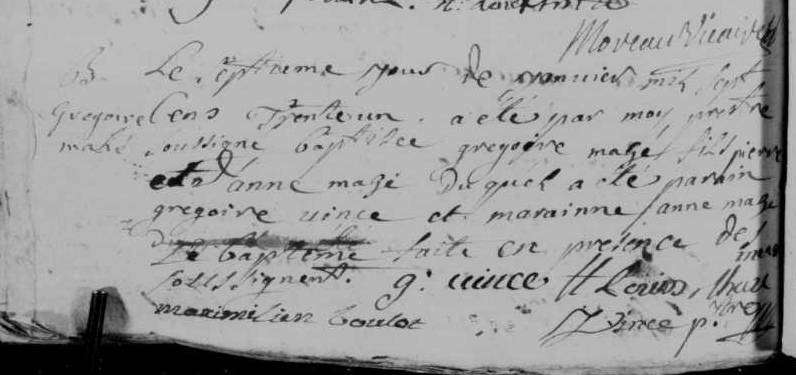 Moreau Vicaire
B. Le septieme jour de janvier mil sept
Gregoire Cens Trente un. a eté par moy prestre
mahé soussigné baptisee gregoire mahé fils pierre
et d'anne mahé duquel a eté parain
gregoire vince et marainne janne mahé
Le bapteme faite en presence des
soussignent. g: vince
maximilian boulot Vince p.